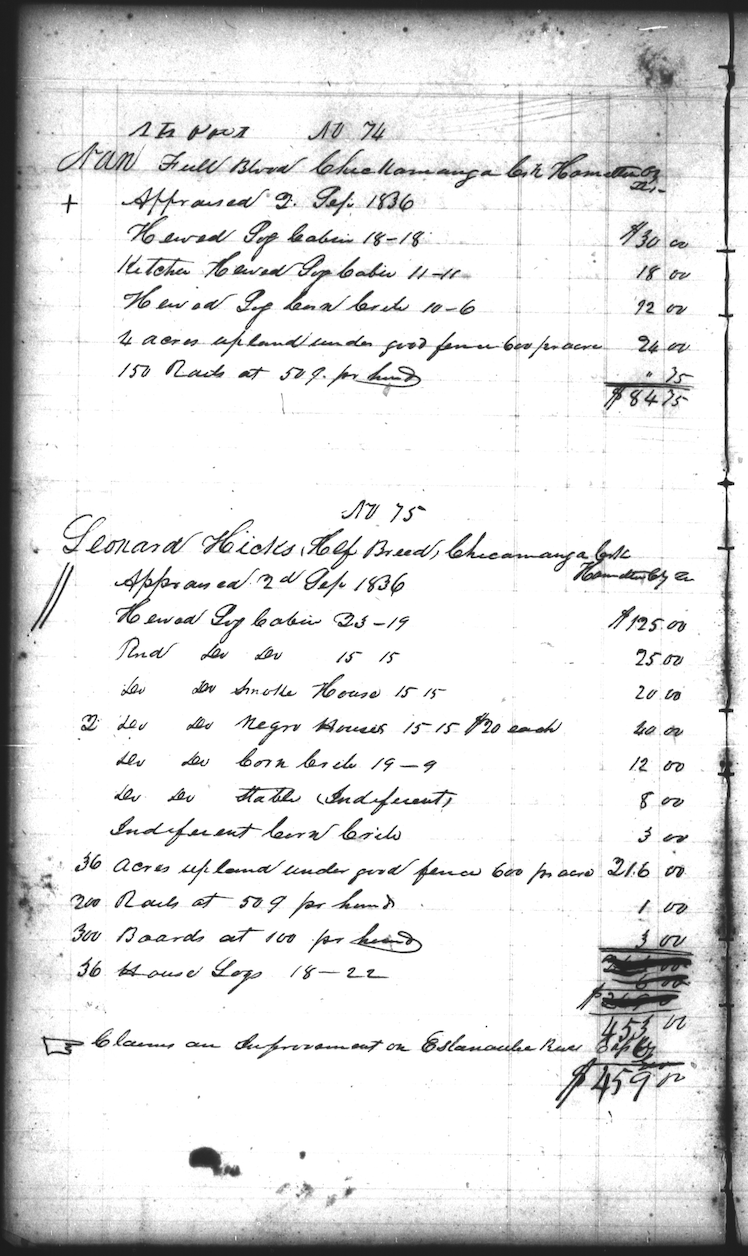 No 74
Nan Full Blood Chickamauga Crk Hamilton Cy
Tn
+ Appraised 2. Sep. 1836
Hewed Log Cabin 18-18 $30 00
Kitchen Hewed Log Cabin 11-11 18 00
Hewed Log Corn Crib 10-6 12 00
4 acres upland under good fence 600 pr acre 24 00
150 Rails at 50 pr hund " 75
$84 75
No 75
Leonard Hicks, Half Breed, Chicamauga Crk
Hamilton Cy Tn
Appraised 2d Sep 1836
Hewed Log Cabin 23-19 $125.00
Rnd Do Do 15 15 25 00
Do Do Smoke House 15 15 20 00
2 Do Do Negro Houses 15-15 $20 each 40 00
Do Do Corn Crib 19-9 12 00
Do Do Stable (Indiferent) 8 00
Indiferent Corn Crib 3 00
36 Acres upland under good fence 600 pr acre 216 00
200 Rails at 50 pr hund 1 00
300 Boards at 100 pr hund 3 00
36 House Logs 18-22
453 00
☞ Claims an Improvement on River
$459 00